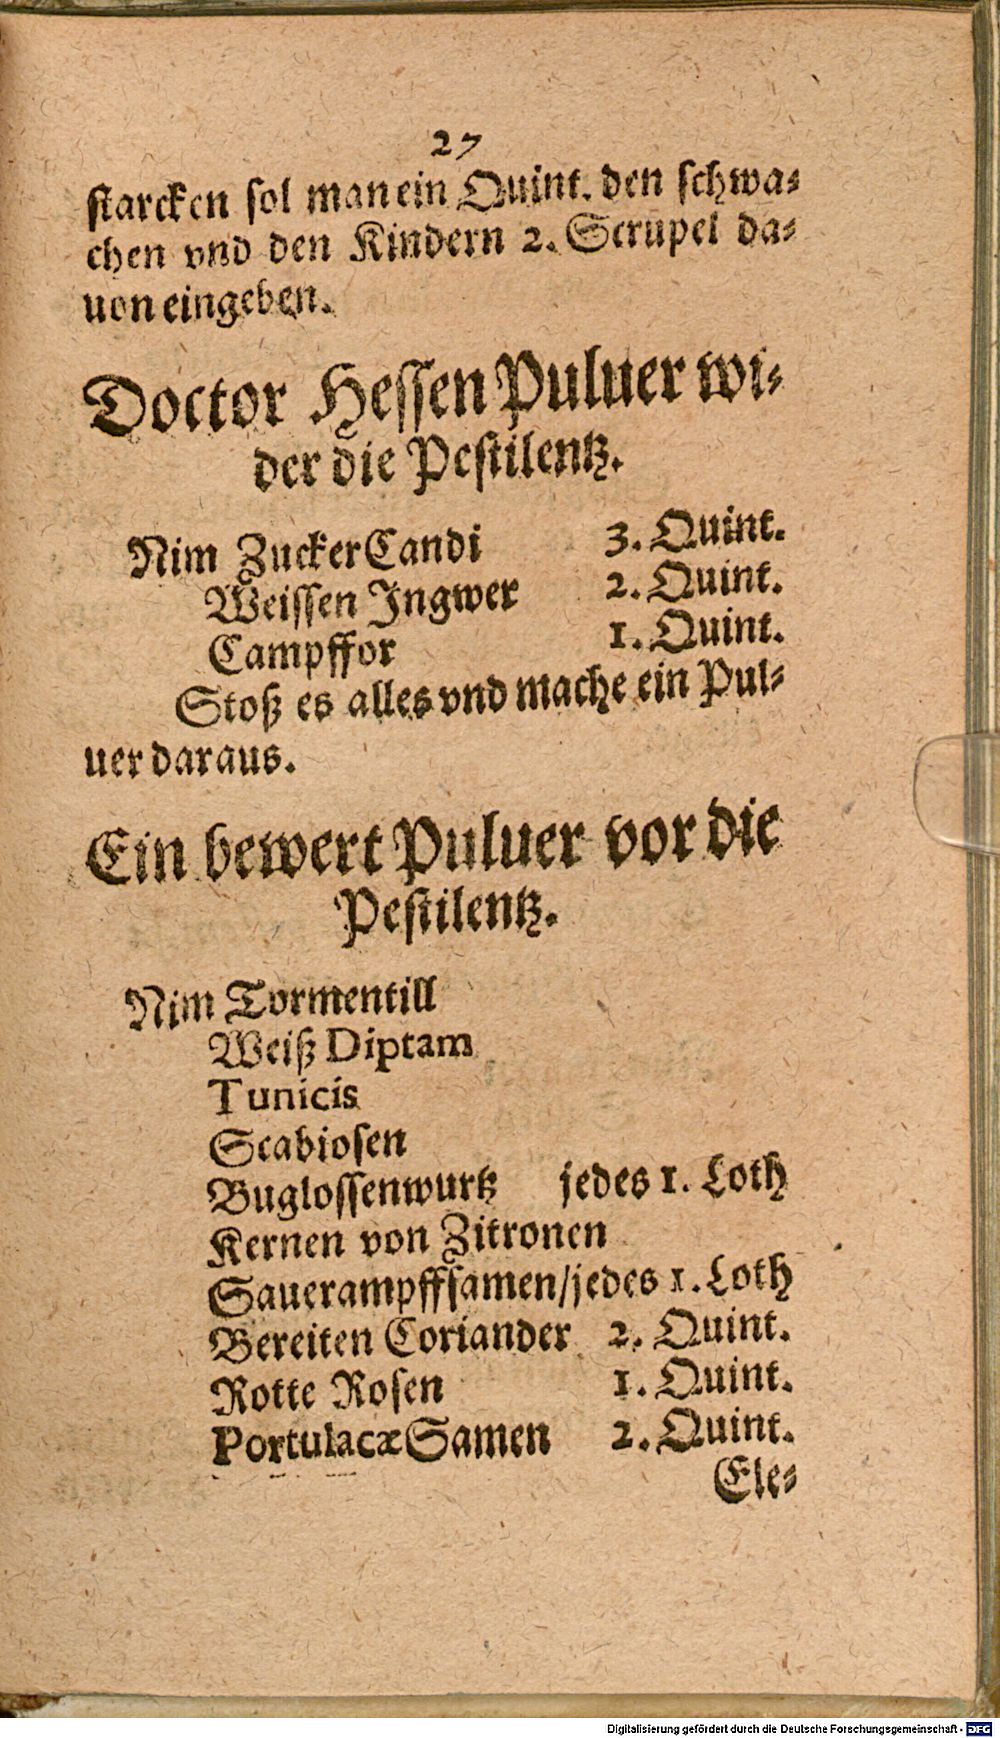 27
starcken sol man ein Quint. den schwa-
chen vnd den Kindern 2. Scrupel da-
uon eingeben.
Doctor Hessen Puluer wi-
der die Pestilentz.
Nim ZuckerCandi 3. Quint.
Weissen Ingwer 2. Quint.
Campffor 1. Quint.
Stoß es alles vnd mache ein Pul-
uer daraus.
Ein bewert Puluer vor die
Pestilentz.
Nim Tormentill
Weiß Diptam
Tunicis
Scabiosen
Buglossenwurtz jedes 1. Loth
Kernen von Zitronen
Sauerampffsamen/jedes 1. Loth
Bereiten Coriander 2. Quint.
Rotte Rosen 1. Quint.
Portulacæ Samen 2. Quint.
Ele-
Digitalisierung gefördert durch die Deutsche Forschungsgemeinschaft - DFG